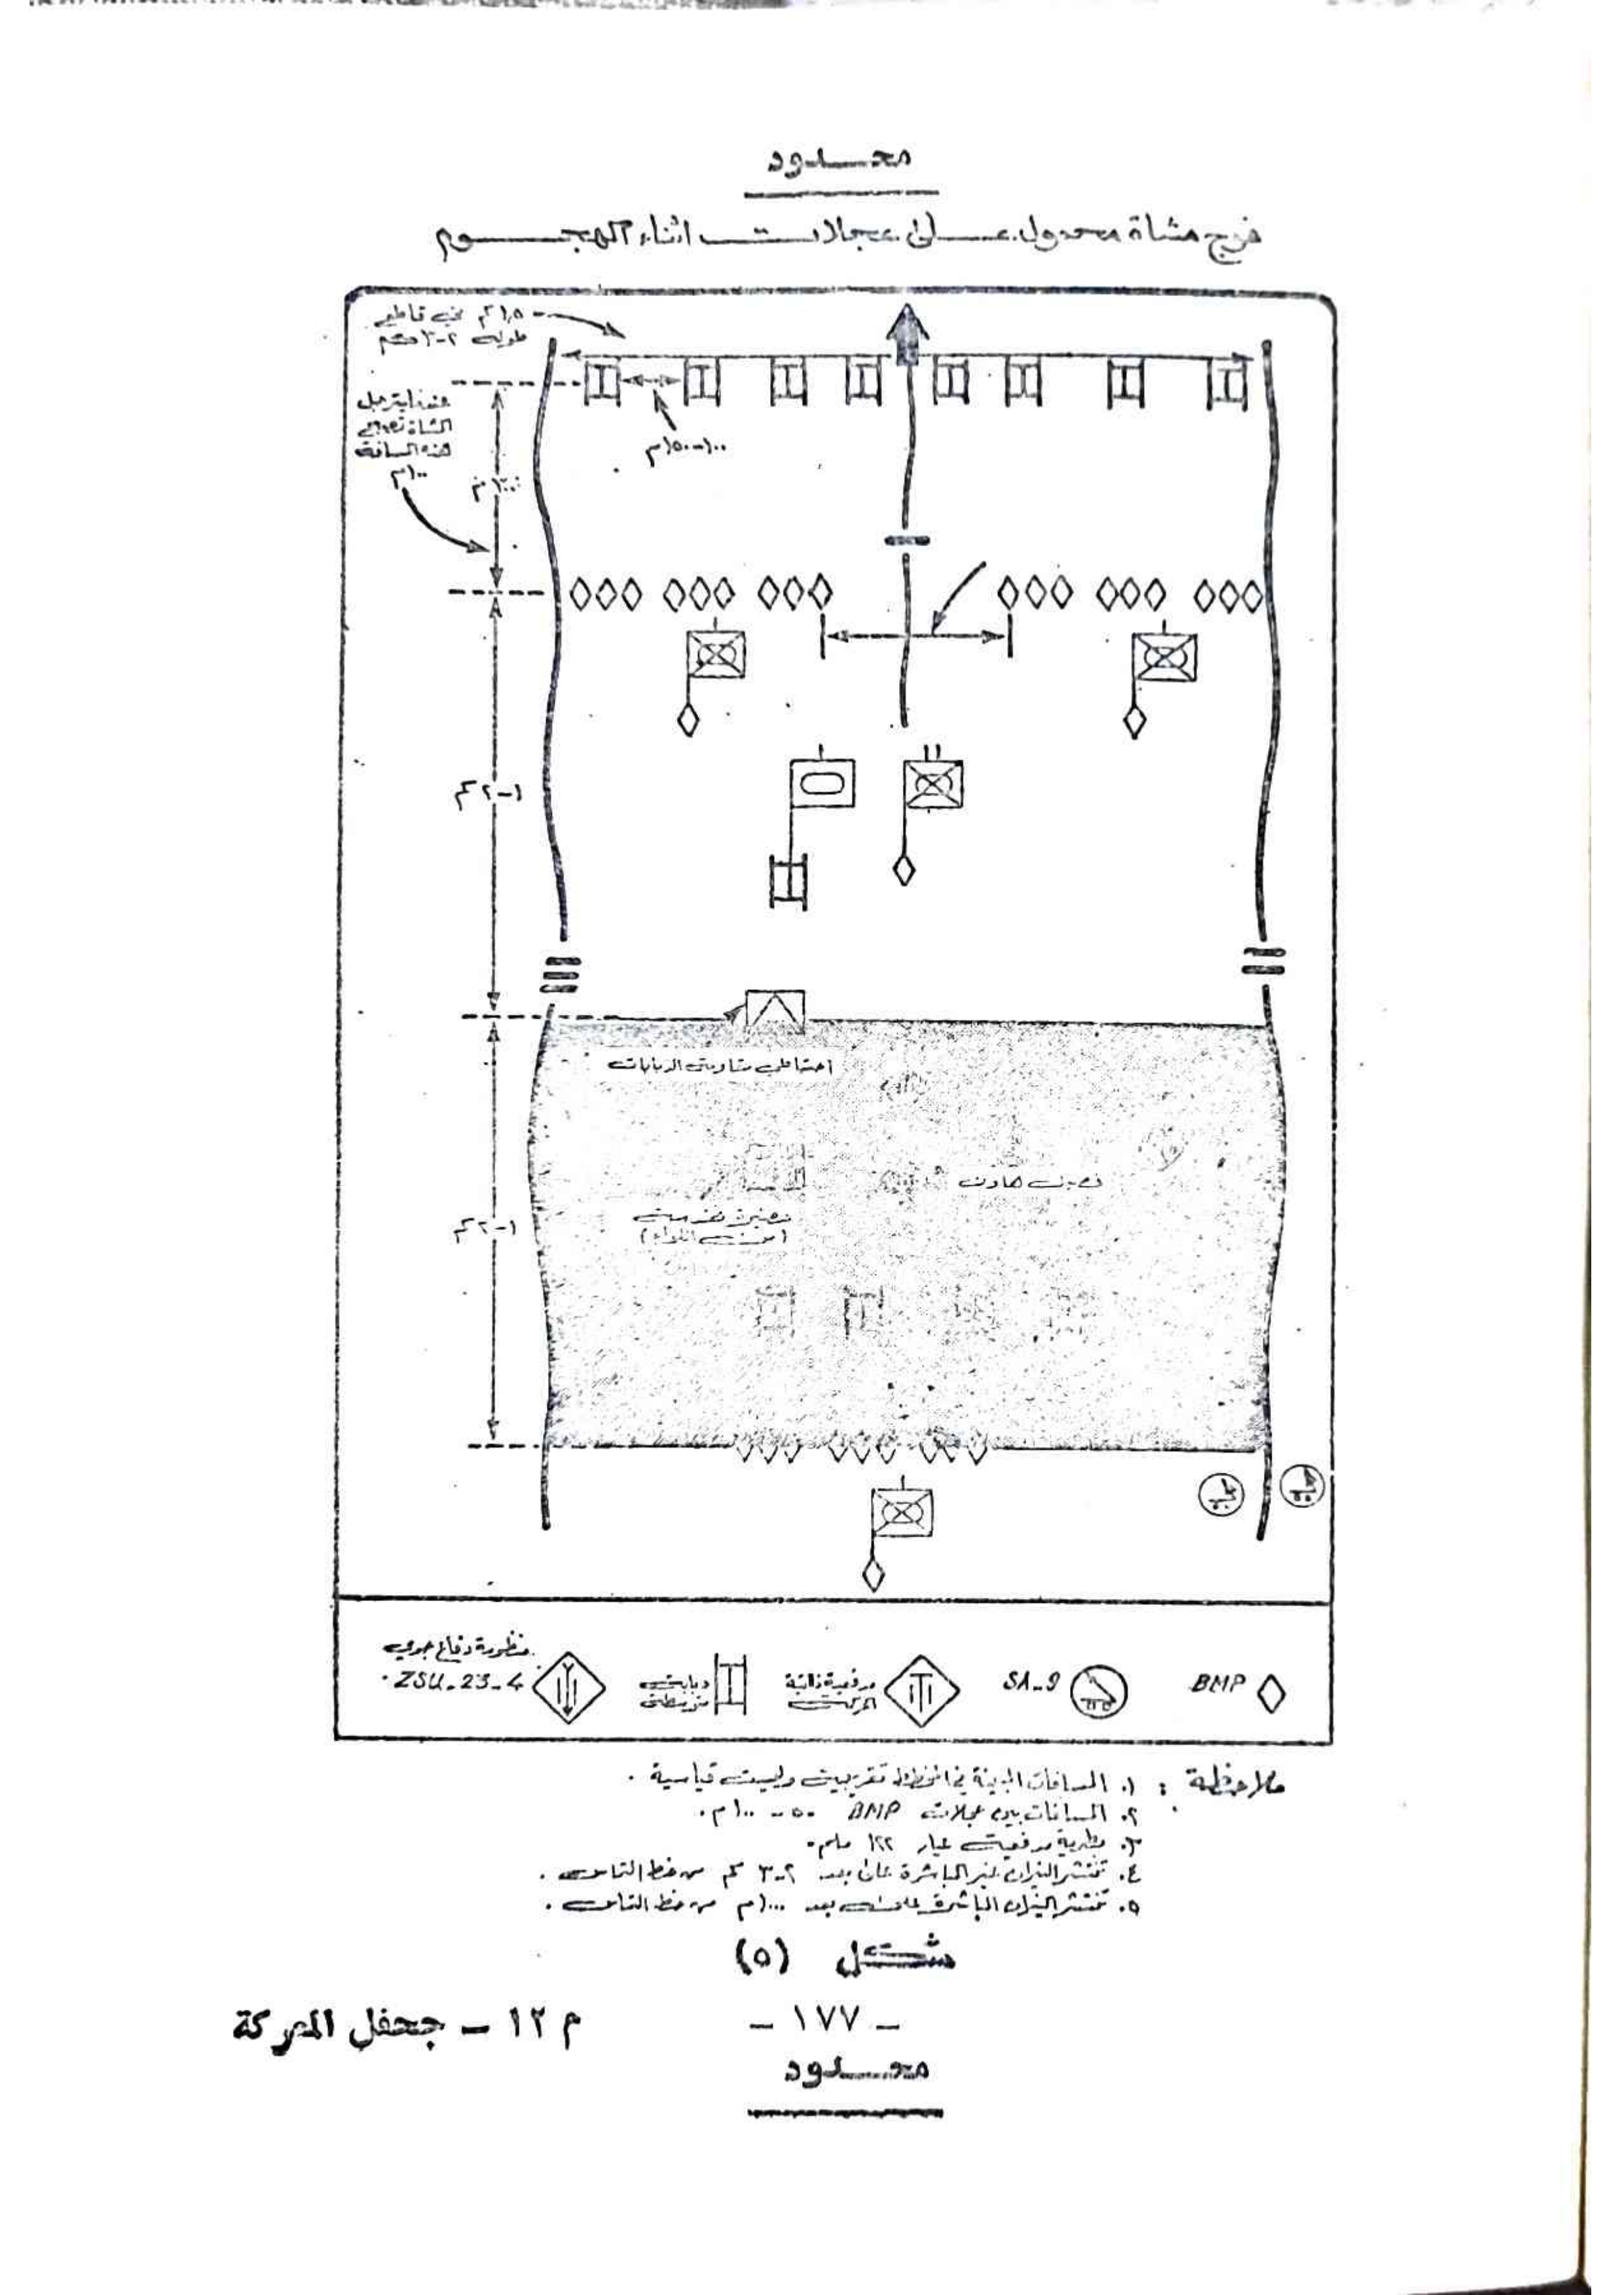 محدود
فوج مشاة محمول على عجلات اثناء الهجوم
١,٥ كم في قاطع
طوله ٢-٣ كم
عندما يترجل
المشاة تصبح
هذه المسافة
١٠٠م
١٠٠-١٥٠م
١-٢ كم
احتياطي مقاومة الدبابات
فصيل هاون
١-٢ كم
(من اللواء)
منظومة دفاع جوي
ZSU-23-4
دبابة
متوسطة
مدفعية ذاتية
الحركة
SA-9
BMP
ملاحظة : ١. المسافات المبينة في المخطط تقريبية وليست قياسية .
٢. المسافات بين عجلات BMP ٥٠-١٠٠م.
٣. بطرية مدفعية عيار ١٢٢ ملم.
٤. تنتشر النيران غير المباشرة على بعد ٢-٣ كم من خط التماس .
٥. تنتشر النيران المباشرة على بعد ١٠٠٠م من خط التماس .
شكل (٥)
م ١٢ – جحفل المعركة
– ١٧٧ –
محدود